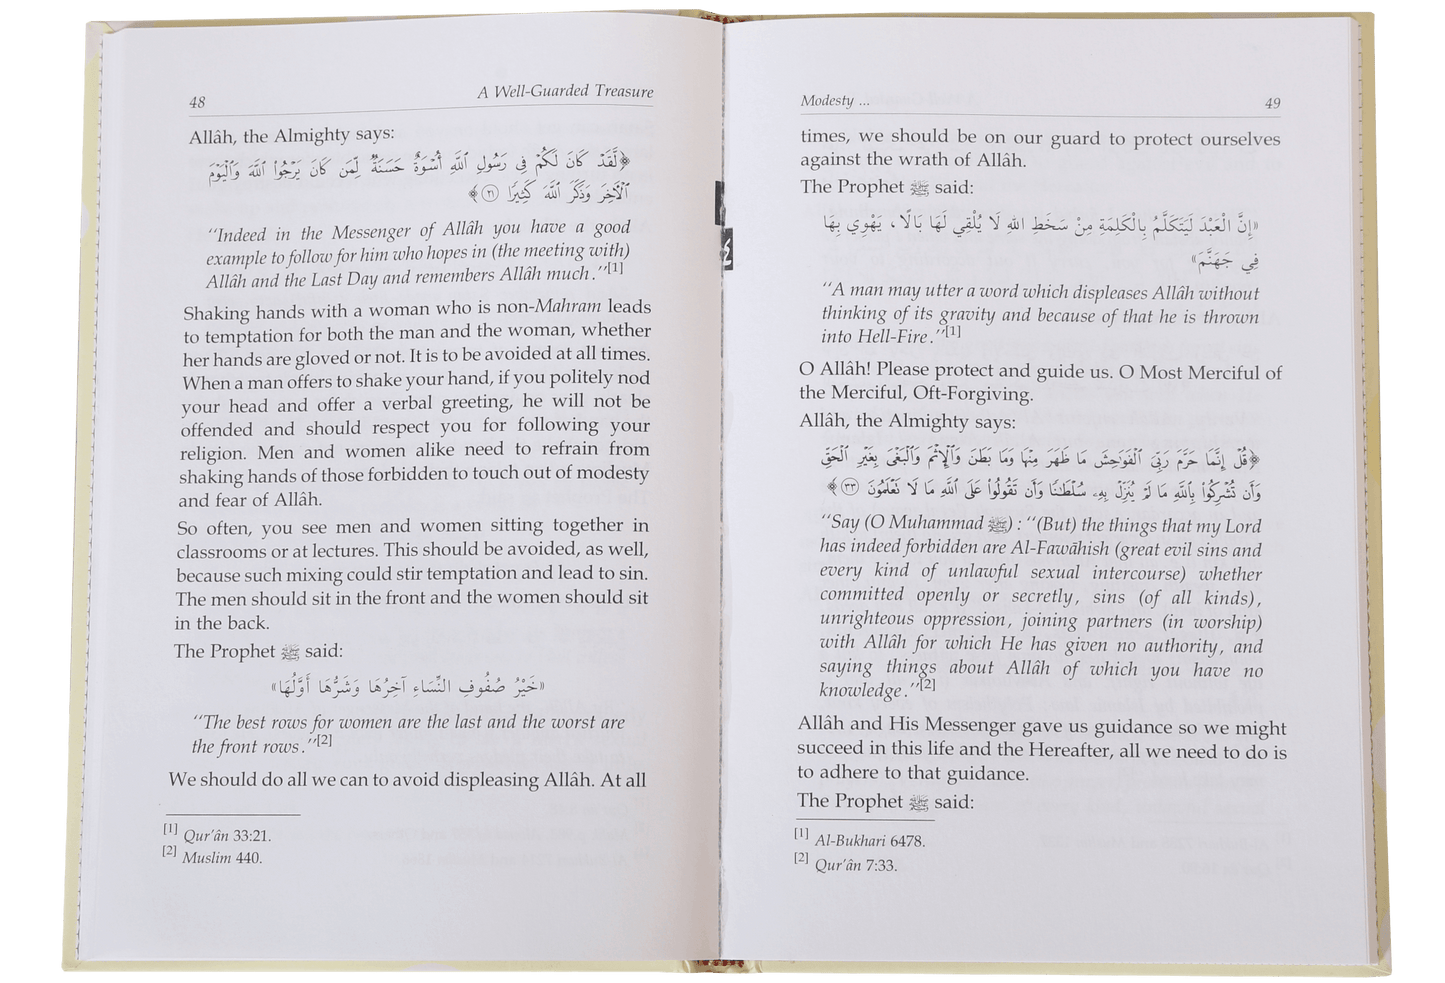 48
A Well-Guarded Treasure
Allâh, the Almighty says:
﴿لَّقَدْ كَانَ لَكُمْ فِى رَسُولِ ٱللَّهِ أُسْوَةٌ حَسَنَةٌ لِّمَن كَانَ يَرْجُوا۟ ٱللَّهَ وَٱلْيَوْمَ
ٱلْـَٔاخِرَ وَذَكَرَ ٱللَّهَ كَثِيرًا ﴿٢١﴾﴾
‘‘Indeed in the Messenger of Allâh you have a good
example to follow for him who hopes in (the meeting with)
Allâh and the Last Day and remembers Allâh much.’’[1]
Shaking hands with a woman who is non-Mahram leads
to temptation for both the man and the woman, whether
her hands are gloved or not. It is to be avoided at all times.
When a man offers to shake your hand, if you politely nod
your head and offer a verbal greeting, he will not be
offended and should respect you for following your
religion. Men and women alike need to refrain from
shaking hands of those forbidden to touch out of modesty
and fear of Allâh.
So often, you see men and women sitting together in
classrooms or at lectures. This should be avoided, as well,
because such mixing could stir temptation and lead to sin.
The men should sit in the front and the women should sit
in the back.
The Prophet ﷺ said:
«خَيْرُ صُفُوفِ النِّسَاءِ آخِرُهَا وَشَرُّهَا أَوَّلُهَا»
‘‘The best rows for women are the last and the worst are
the front rows.’’[2]
We should do all we can to avoid displeasing Allâh. At all
[1] Qur’ân 33:21.
[2] Muslim 440.
Modesty ...
49
times, we should be on our guard to protect ourselves
against the wrath of Allâh.
The Prophet ﷺ said:
«إِنَّ الْعَبْدَ لَيَتَكَلَّمُ بِالْكَلِمَةِ مِنْ سَخَطِ اللهِ لَا يُلْقِي لَهَا بَالًا، يَهْوِي بِهَا
فِي جَهَنَّمَ»
‘‘A man may utter a word which displeases Allâh without
thinking of its gravity and because of that he is thrown
into Hell-Fire.’’[1]
O Allâh! Please protect and guide us. O Most Merciful of
the Merciful, Oft-Forgiving.
Allâh, the Almighty says:
﴿قُلْ إِنَّمَا حَرَّمَ رَبِّىَ ٱلْفَوَٰحِشَ مَا ظَهَرَ مِنْهَا وَمَا بَطَنَ وَٱلْإِثْمَ وَٱلْبَغْىَ بِغَيْرِ ٱلْحَقِّ
وَأَن تُشْرِكُوا۟ بِٱللَّهِ مَا لَمْ يُنَزِّلْ بِهِۦ سُلْطَـٰنًا وَأَن تَقُولُوا۟ عَلَى ٱللَّهِ مَا لَا تَعْلَمُونَ ﴿٣٣﴾﴾
‘‘Say (O Muhammad ﷺ) : ‘‘(But) the things that my Lord
has indeed forbidden are Al-Fawāhish (great evil sins and
every kind of unlawful sexual intercourse) whether
committed openly or secretly, sins (of all kinds),
unrighteous oppression, joining partners (in worship)
with Allâh for which He has given no authority, and
saying things about Allâh of which you have no
knowledge.’’[2]
Allâh and His Messenger gave us guidance so we might
succeed in this life and the Hereafter, all we need to do is
to adhere to that guidance.
The Prophet ﷺ said:
[1] Al-Bukhari 6478.
[2] Qur’ân 7:33.